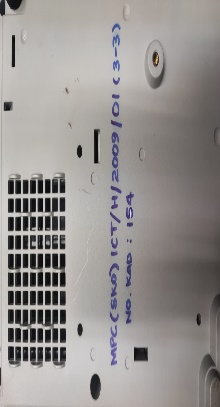 MPC(SKO)ICT/H/2009/01(3-3)
NO. KAD : 154